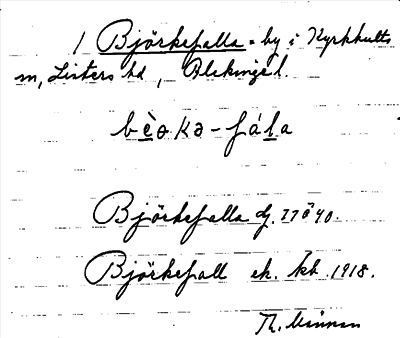 1 Björkefalla = by i Kyrkhults
sn, Listers hd, Blekinge l.
bè̱ɵkə-fálá
Björkefalla dj. 77ö40.
Björkefall ek. kb. 1918.
Th.